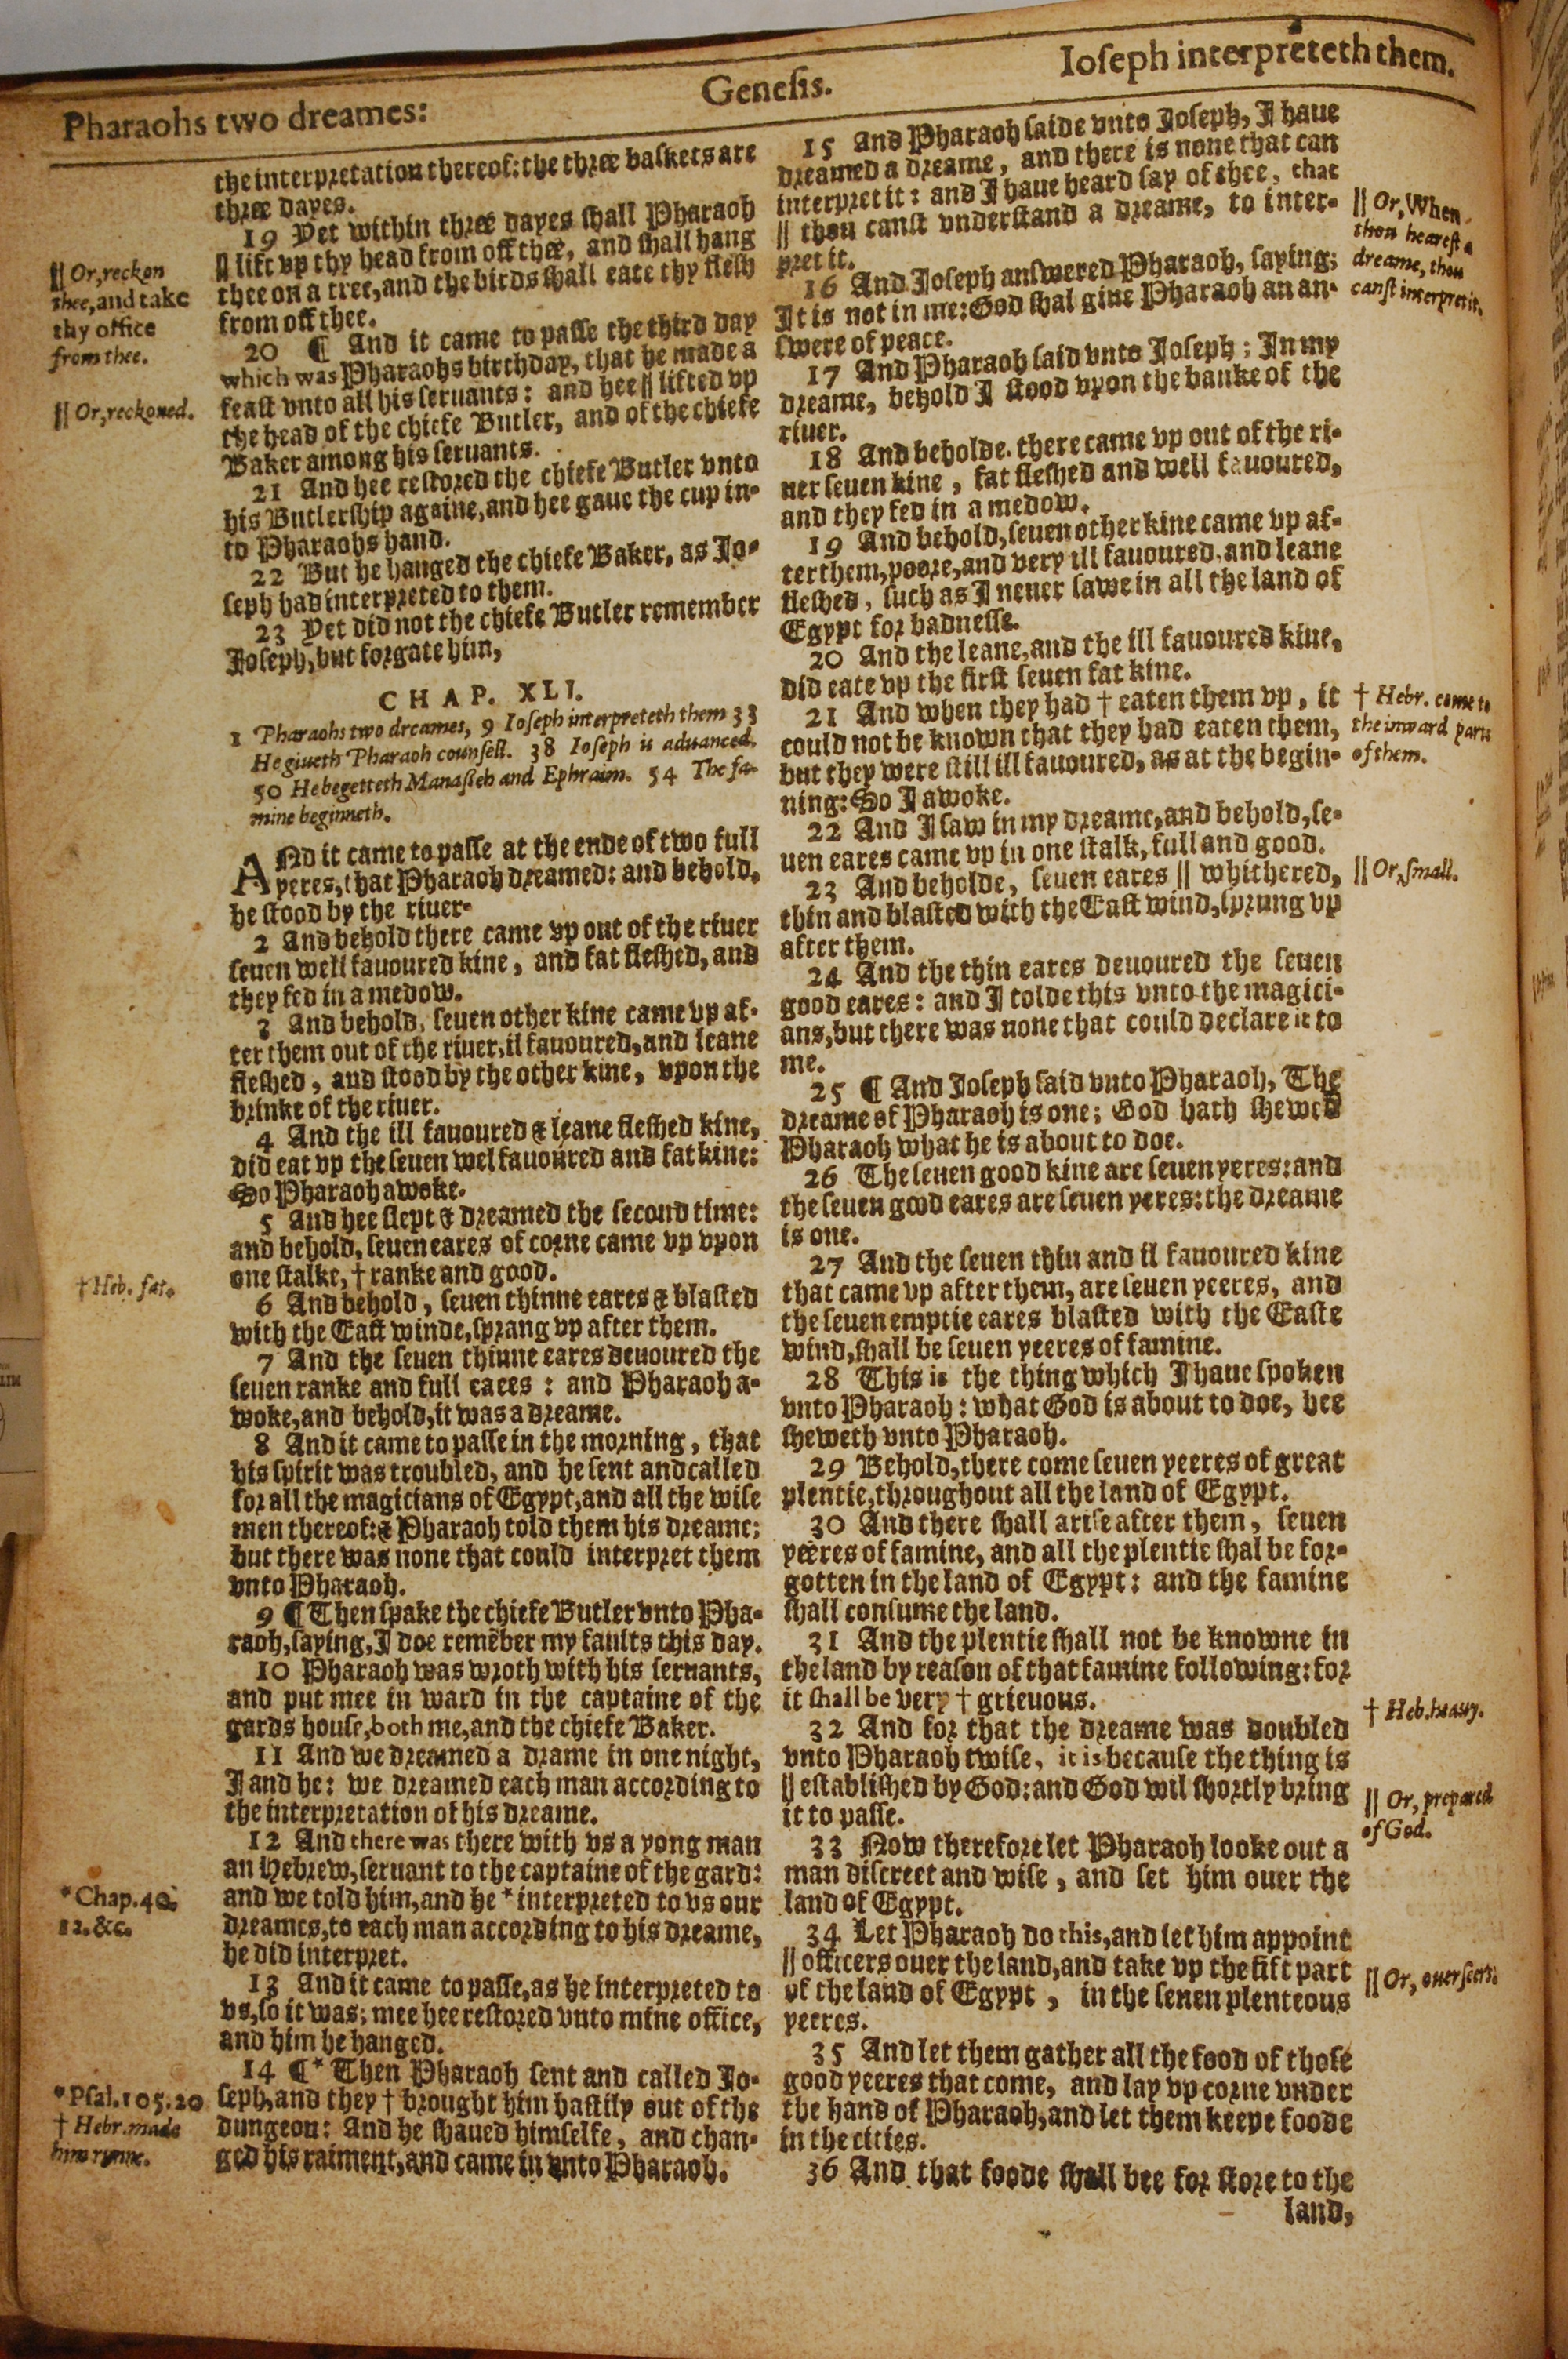 Pharaohs two dreames:
Genesis.
Ioseph interpreteth them.
the interpretation thereof: the thrée baskets are
thrée dayes.
19 Yet within thrée dayes shall Pharaoh
|| lift vp thy head from off thée, and shall hang
thee on a tree, and the birds shall eate thy flesh
from off thee.
20 ¶ And it came to passe the third day
which was Pharaohs birthday, that he made a
feast vnto all his seruants: and hee || lifted vp
the head of the chiefe Butler, and of the chiefe
Baker among his seruants.
21 And hee restored the chiefe Butler vnto
his Butlership againe, and hee gaue the cup in-
to Pharaohs hand.
22 But he hanged the chiefe Baker, as Io-
seph had interpreted to them.
23 Yet did not the chiefe Butler remember
Ioseph, but forgate him,
CHAP. XLI.
1 Pharaohs two dreames, 9 Ioseph interpreteth them 33
He giueth Pharaoh counsell. 38 Ioseph is aduanced.
50 He begetteth Manasseh and Ephraim. 54 The fa-
mine beginneth.
ANd it came to passe at the ende of two full
yeres, that Pharaoh dreamed: and behold,
he stood by the riuer.
2 And behold there came vp out of the riuer
seuen well fauoured kine, and fat fleshed, and
they fed in a medow.
3 And behold, seuen other kine came vp af-
ter them out of the riuer, il fauoured, and leane
fleshed, and stood by the other kine, vpon the
brinke of the riuer.
4 And the ill fauoured & leane fleshed kine,
did eat vp the seuen wel fauoured and fat kine:
So Pharaoh awoke.
5 And hee slept & dreamed the second time:
and behold, seuen eares of corne came vp vpon
one stalke, † ranke and good.
6 And behold, seuen thinne eares & blasted
with the East winde, sprang vp after them.
7 And the seuen thinne eares deuoured the
seuen ranke and full eares: and Pharaoh a-
woke, and behold, it was a dreame.
8 And it came to passe in the morning, that
his spirit was troubled, and he sent and called
for all the magicians of Egypt, and all the wise
men thereof: & Pharaoh told them his dreame;
but there was none that could interpret them
vnto Pharaoh.
9 ¶ Then spake the chiefe Butler vnto Pha-
raoh, saying, I doe remẽber my faults this day.
10 Pharaoh was wroth with his seruants,
and put mee in ward in the captaine of the
gards house, both me, and the chiefe Baker.
11 And we dreamed a drame in one night,
I and he: we dreamed each man according to
the interpretation of his dreame.
12 And there was there with vs a yong man
an Hebrew, seruant to the captaine of the gard:
and we told him, and he * interpreted to vs our
dreames, to each man according to his dreame,
he did interpret.
13 And it came to passe, as he interpreted to
vs, so it was; mee hee restored vnto mine office,
and him he hanged.
14 ¶ * Then Pharaoh sent and called Io-
seph, and they † brought him hastily out of the
dungeon: And he shaued himselfe, and chan-
ged his raiment, and came in vnto Pharaoh.
|| Or, reckon
thee, and take
thy office
from thee.
|| Or, reckoned.
† Heb. fat.
* Chap. 40.
12. &c.
* Psal. 105. 20
† Hebr. made
him runne.
15 And Pharaoh saide vnto Ioseph, I haue
dreamed a dreame, and there is none that can
interpret it: and I haue heard say of thee, that
|| thou canst vnderstand a dreame, to inter-
pret it.
16 And Ioseph answered Pharaoh, saying;
It is not in me: God shal giue Pharaoh an an-
swere of peace.
17 And Pharaoh said vnto Ioseph; In my
dreame, behold I stood vpon the banke of the
riuer.
18 And beholde. there came vp out of the ri-
uer seuen kine, fat fleshed and well fauoured,
and they fed in a medow.
19 And behold, seuen other kine came vp af-
ter them, poore, and very ill fauoured, and leane
fleshed, such as I neuer sawe in all the land of
Egypt for badnesse.
20 And the leane, and the ill fauoured kine,
did eate vp the first seuen fat kine.
21 And when they had † eaten them vp, it
could not be known that they had eaten them,
but they were still ill fauoured, as at the begin-
ning: So I awoke.
22 And I saw in my dreame, and behold, se-
uen eares came vp in one stalk, full and good.
23 And beholde, seuen eares || whithered,
thin and blasted with the East wind, sprung vp
after them.
24 And the thin eares deuoured the seuen
good eares: and I tolde this vnto the magici-
ans, but there was none that could declare it to
me.
25 ¶ And Ioseph said vnto Pharaoh, The
dreame of Pharaoh is one; God hath shewed
Pharaoh what he is about to doe.
26 The seuen good kine are seuen yeres: and
the seuen good eares are seuen yeres: the dreame
is one.
27 And the seuen thin and il fauoured kine
that came vp after them, are seuen yeeres, and
the seuen emptie eares blasted with the Easte
wind, shall be seuen yeeres of famine.
28 This is the thing which I haue spoken
vnto Pharaoh: what God is about to doe, hee
sheweth vnto Pharaoh.
29 Behold, there come seuen yeeres of great
plentie, throughout all the land of Egypt.
30 And there shall arise after them, seuen
yeeres of famine, and all the plentie shal be for-
gotten in the land of Egypt: and the famine
shall consume the land.
31 And the plentie shall not be knowne in
the land by reason of that famine following: for
it shall be very † grieuous.
32 And for that the dreame was doubled
vnto Pharaoh twise, it is because the thing is
|| established by God: and God wil shortly bring
it to passe.
33 Now therefore let Pharaoh looke out a
man discreet and wise, and set him ouer the
land of Egypt.
34 Let Pharaoh do this, and let him appoint
|| officers ouer the land, and take vp the fift part
of the land of Egypt, in the seuen plenteous
yeeres.
35 And let them gather all the food of those
good yeeres that come, and lay vp corne vnder
the hand of Pharaoh, and let them keepe foode
in the cities.
36 And that foode shall bee for store to the
land,
|| Or, When
thou hearest a
dreame, thou
canst interpret it.
† Hebr. come to
the inward parts
of them.
|| Or, small.
† Heb. heauy.
|| Or, prepared
of God.
|| Or, ouerseers.